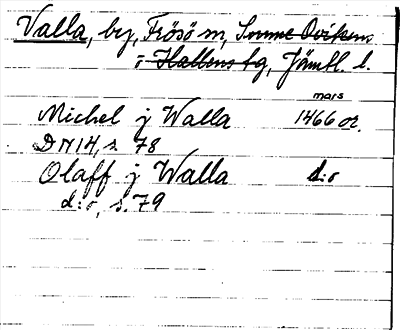 Valla, by, Frösö m, Sunne Ovikens
i Hallens tg, Jämtl. l.
mars
Michel j Walla 1466 or.
DN 14, s. 78
Olaff j Walla d:o
d:o, s. 79